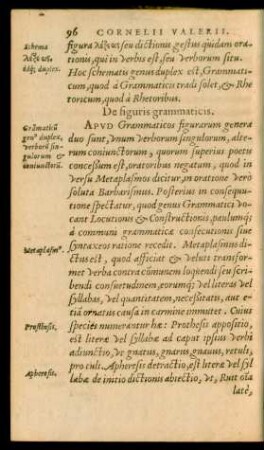 96 CORNELII VALERII.
Schema
λέξεως
duplex.
figura λέξεως seu dictionis gestus quidam orationis, qui in verbis est, seu verborum situ.
Hoc schematis genus duplex est, Grammaticum, quod à Grammaticis tradi solet, & Rhetoricum, quod à Rhetoribus.
De figuris grammaticis.
Grāmaticū
gen⁹ duplex,
verborū singulorum &
coniunctorū.
APVD Grammaticos figurarum genera
duo sunt, vnum verborum singulorum, alterum coniunctorum, quorum superius poetis
concessum est, oratoribus negatum, quod in
versu Metaplasmos dicitur, in oratione verò
soluta Barbarismus. Posterius in consequutione spectatur, quod genus Grammatici vocant Locutionis & Constructionis, paulumq́;
à communi grammaticæ consecutionis siue
Syntaxeos ratione recedit. Metaplasmus dictus est, quod afficiat & veluti transformet verba contra cōmunem loquendi seu scribendi consuetudinem, eorumq́; vel literas vel
syllabas, vel quantitatem, necessitatis, aut etiā ornatus causa in carmine immutet. Cuius
species numerantur hæ: Prothesis appositio,
est literæ vel syllabæ ad caput ipsius verbi
adiunctio, vt gnatus, gnarus, gnauus, retuli,
pro tuli. Apheresis detractio, est literæ vel syllabæ de initio dictionis abiectio, vt, Ruit oīa
latè,
Metaplasm⁹.
Prosthesis.
Apheresis.